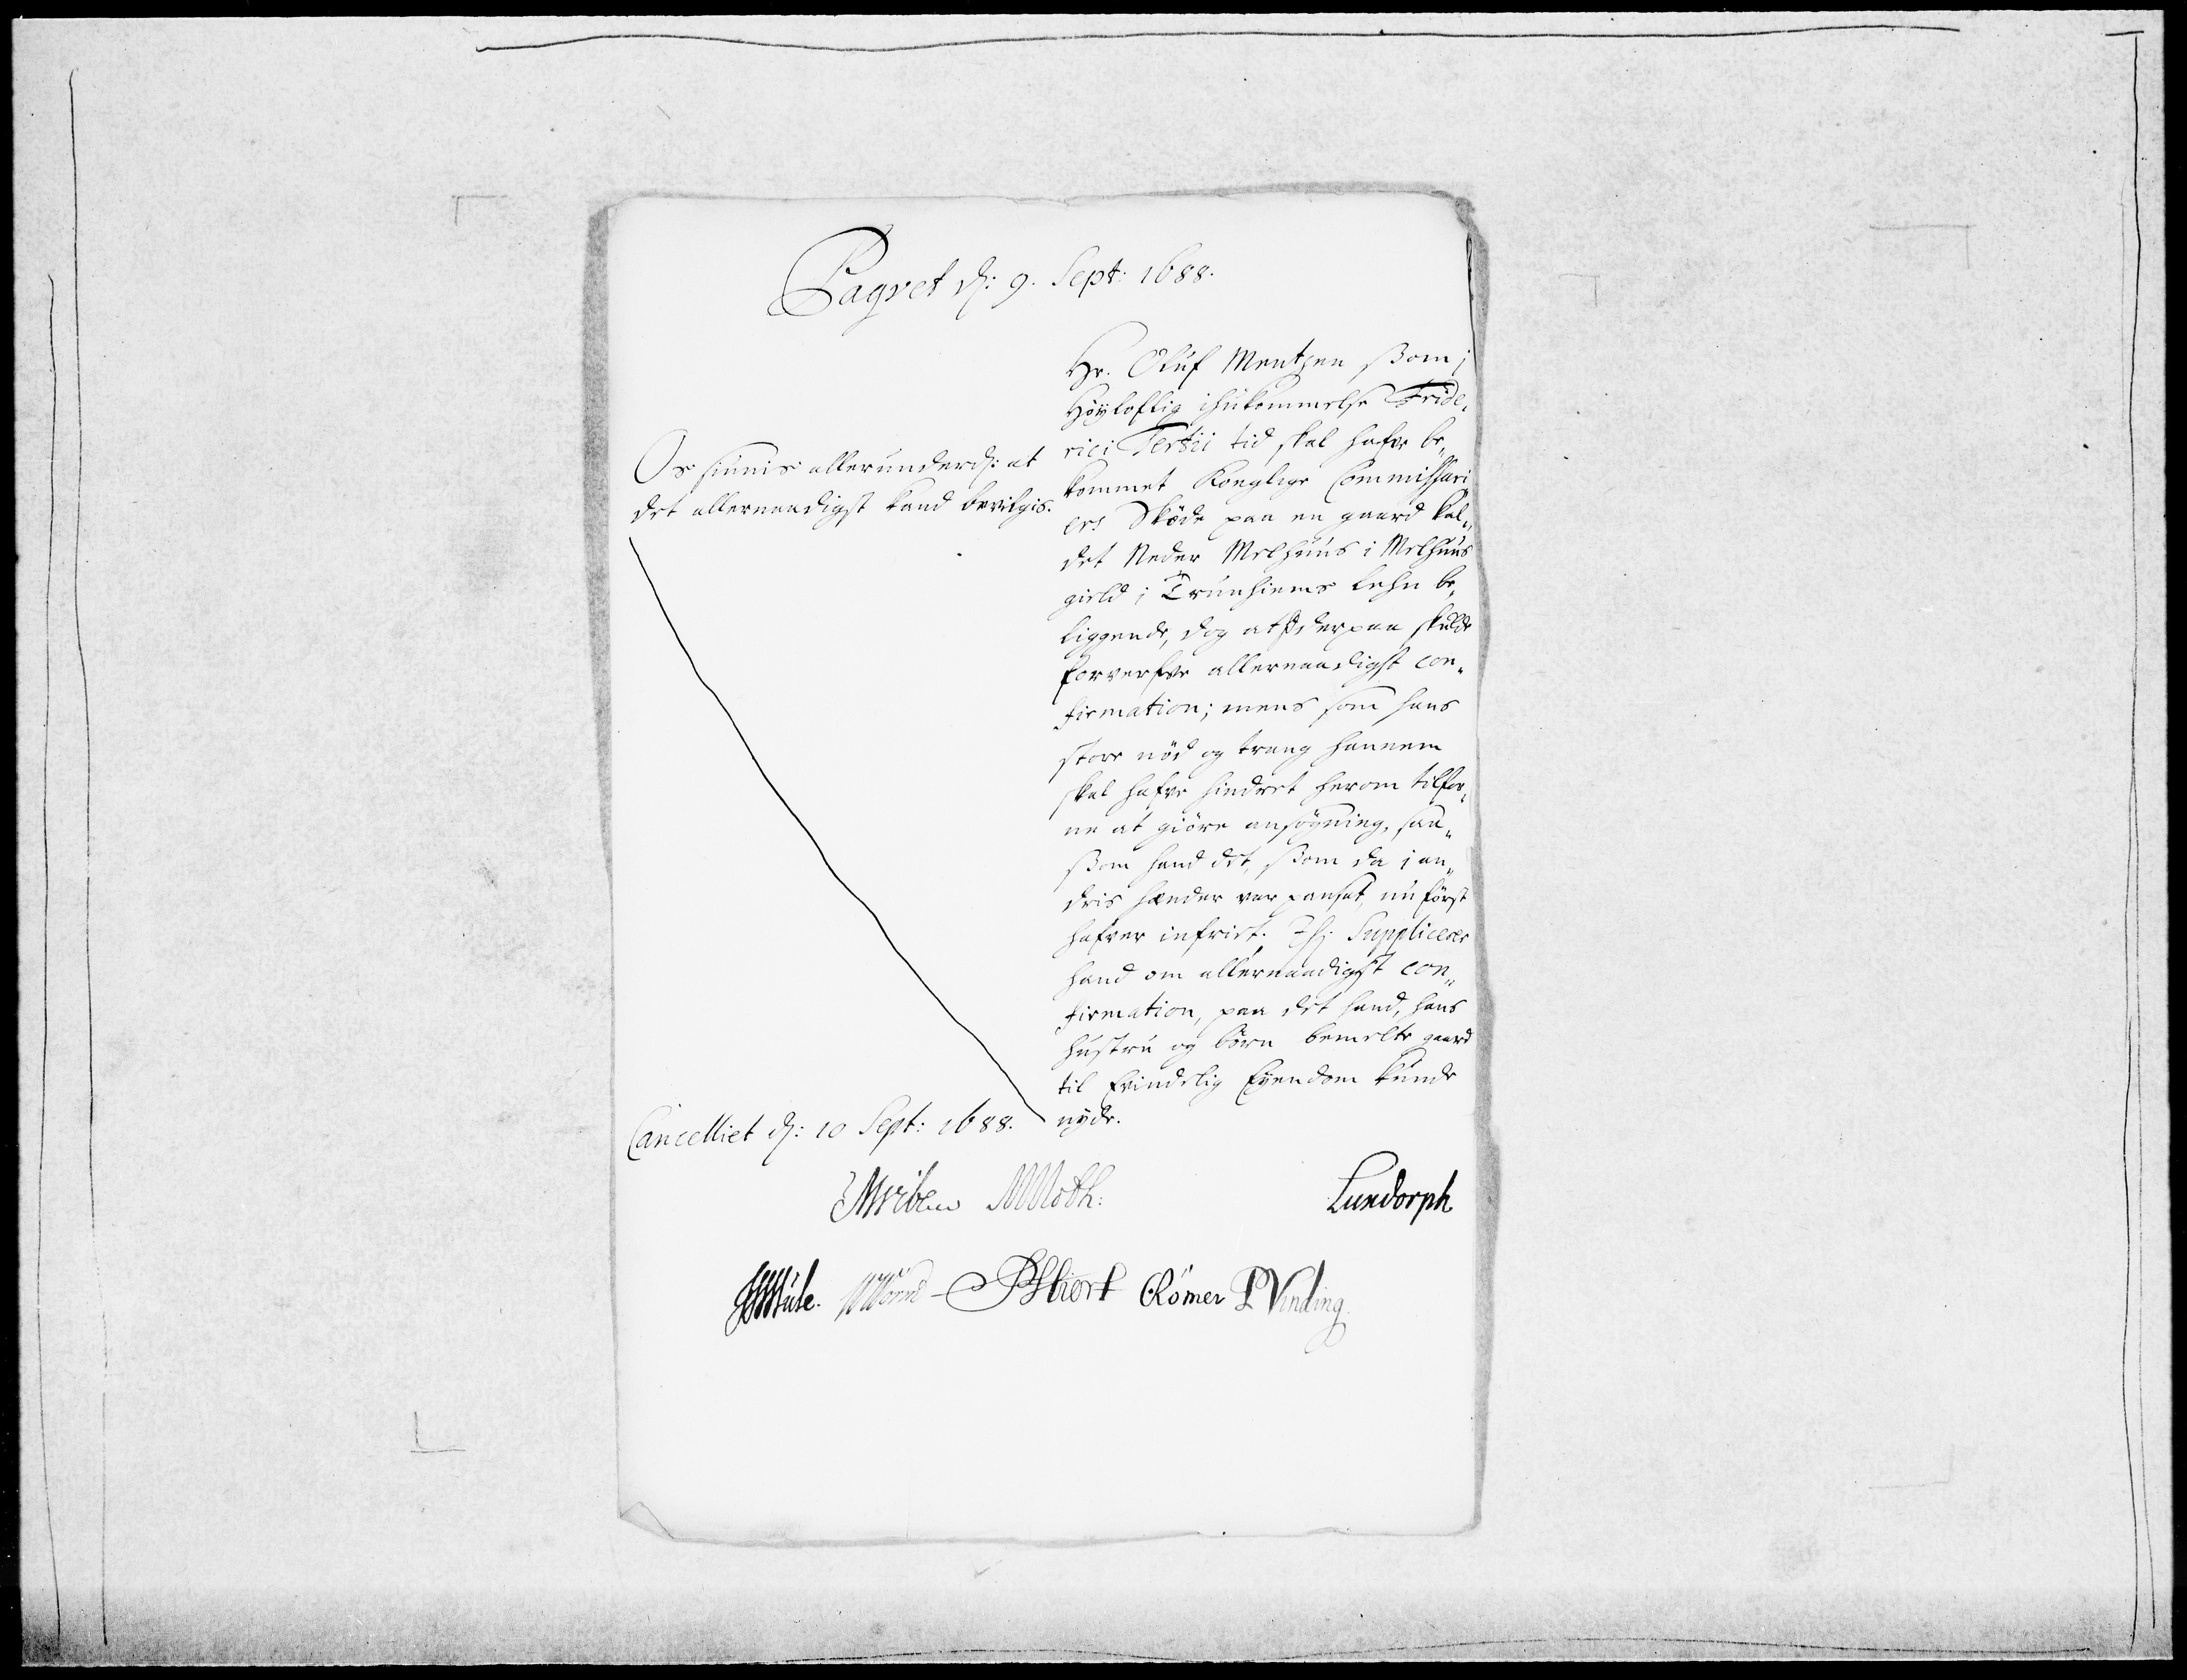 Pagvet d: 9. Sept: 1688.
Hr. Oluf Mentzen ßom i
Høyloflig ihukommelse Fride„
rici Tertii tid skal hafve be„
kommet Konglige Commissari
ers Skøde paa en gaard kal„
det Neder Melhuus i Melhuus
gield i Trunhiems Lehn be„
liggende, dog at derpaa skulde
forverfve allernaadigst con„
firmation; mens som hans
store nød og trang hannem
skal hafve hindret herom tilfor„
ne at giøre ansøgning, saa„
ßom hand det, ßom da i an„
dris hænder var pansat, nu først
hafver infriet. Thj Supplicerer
hand om allernaadigst con„
firmation, paa det hand, hans
hustru og børn bemelte gaard
til Evindelig Eyendom kunde
nyde.
Os siunis allerunderd: at
det allernaadigst kand bevilgis.
Cancelliet d: 10 Sept: 1688.
MWiben MMoth: Lundorph
Mule. WWorm PSkiort ORömer PVinding